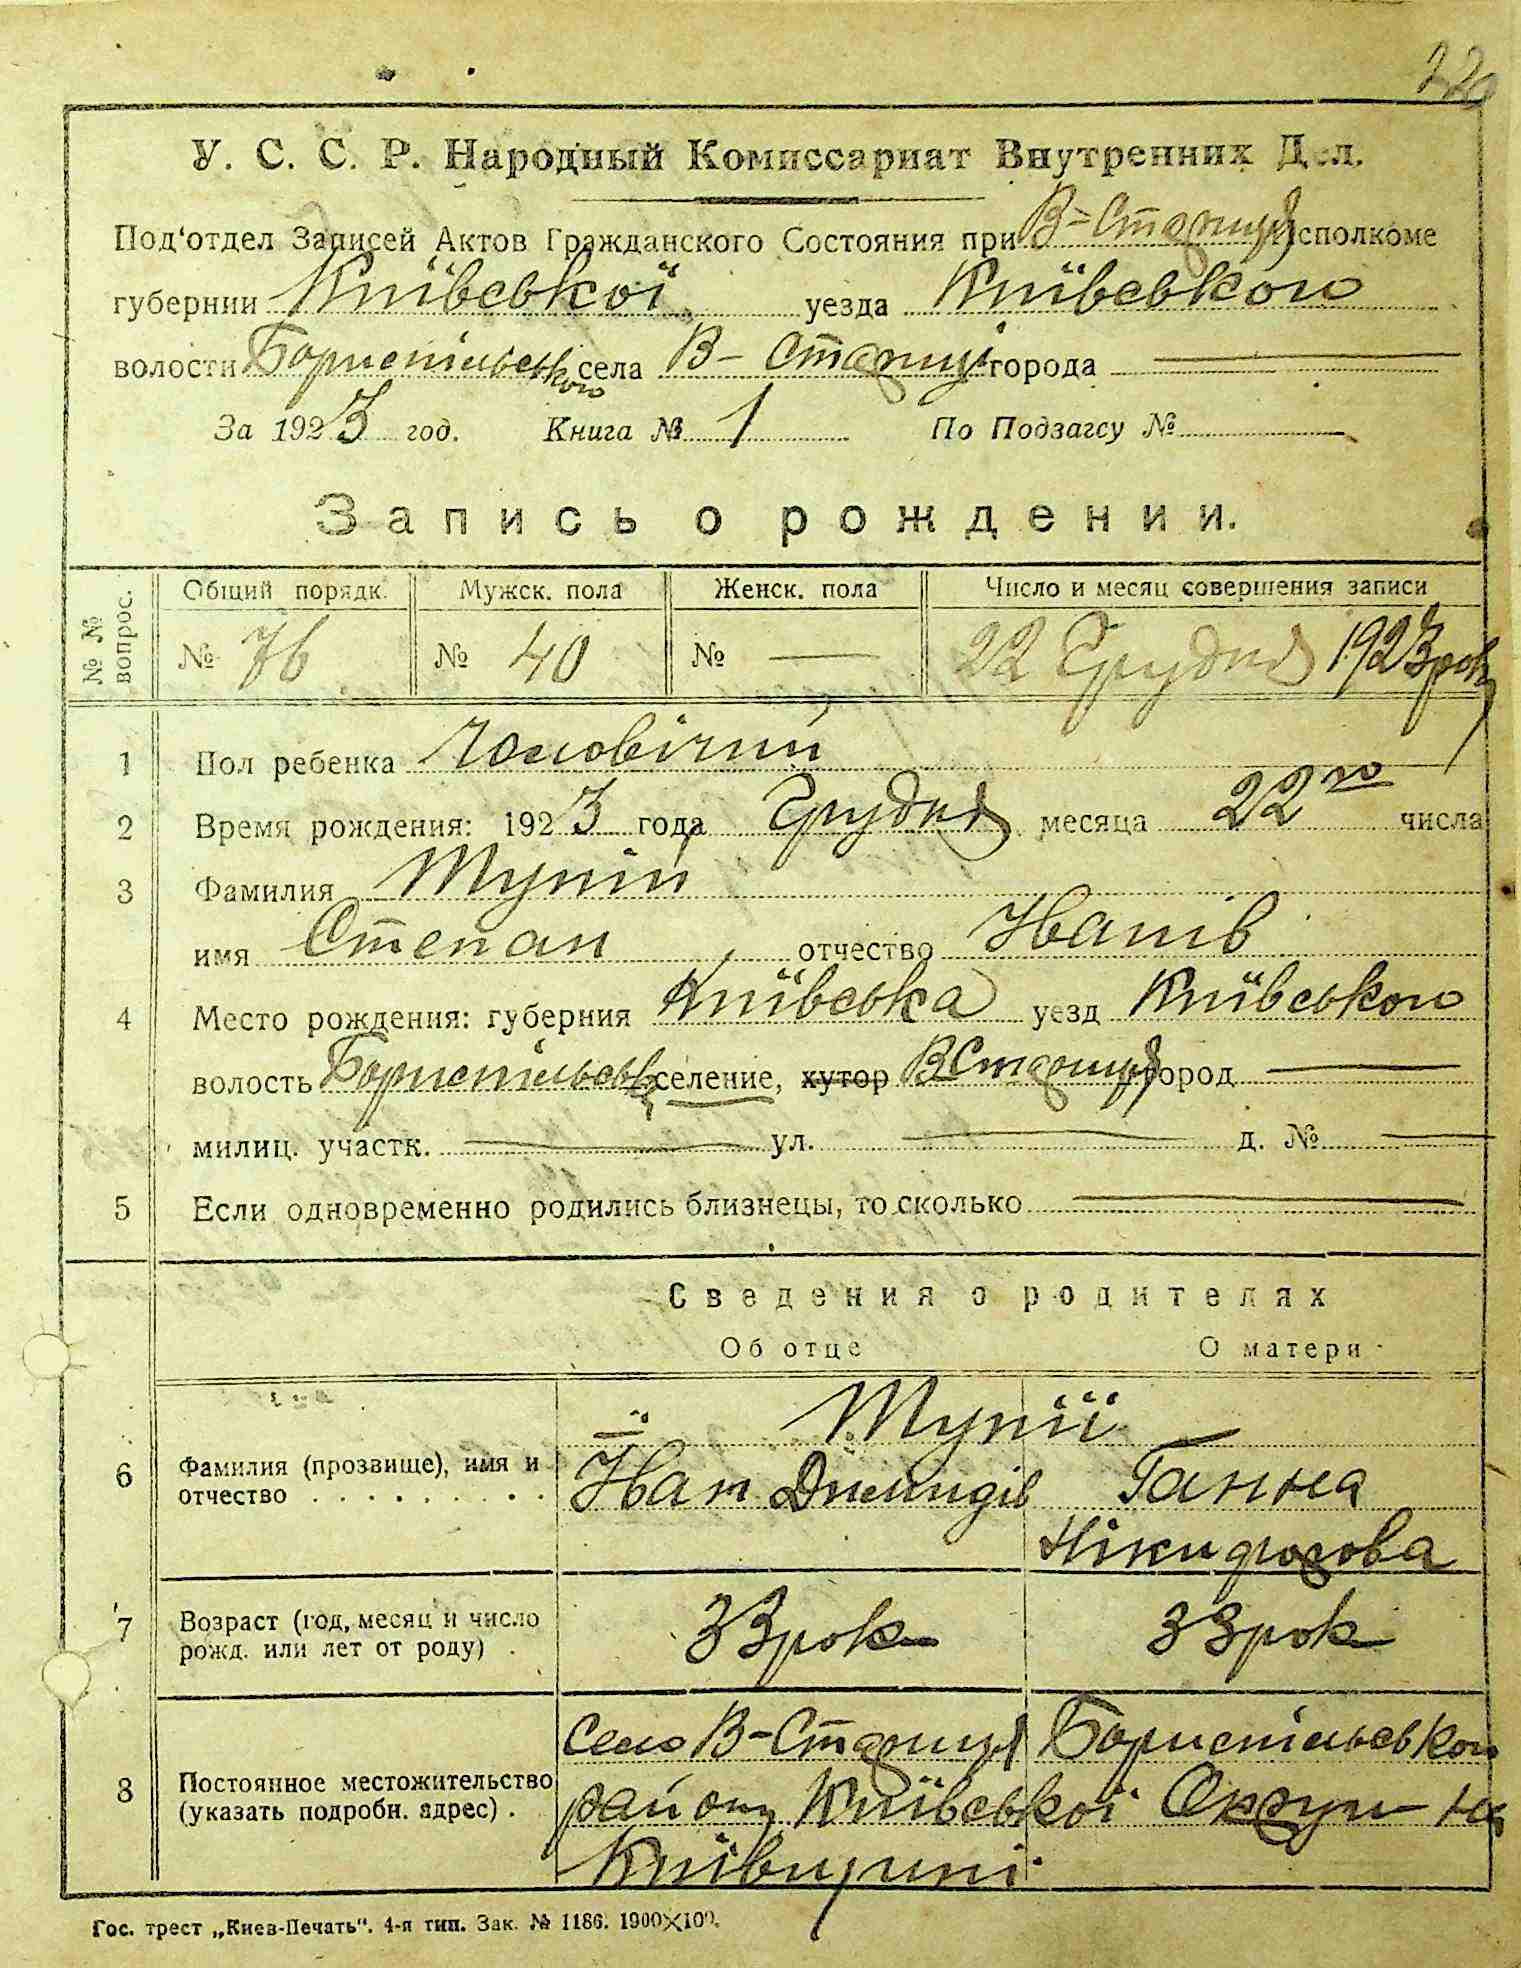 220
У. С. С. Р. Народный Комиссариат Внутренних Дел.
Под'отдел Записей Актов Гражданского Состояния при В=Стариця Исполкоме
губернии Київської уезда Київського
волости Бориспільського села В-Стариці города —
За 1923 год. Книга № 1 По Подзагсу №
Запись о рождении.
№ № вопрос. Общий порядк. Мужск. пола Женск. пола Число и месяц совершения записи
№ 76 № 40 № — 22 Грудня 1923 року
1 Пол ребенка Чоловічий
2 Время рождения: 1923 года Грудня месяца 22го числа
3 Фамилия Тупій
имя Степан отчество Іванів
4 Место рождения: губерния Київська уезд Київського
волость Бориспільськ селение, хутор ВСтариця город —
милиц. участк. — ул. — д. № —
5 Если одновременно родились близнецы, то сколько —
Сведения о родителях
Об отце О матери
Тупії
6 Фамилия (прозвище), имя и отчество Іван Диомидів Ганна
Нікифорова
7 Возраст (год, месяц и число рожд. или лет от роду) 33 рок 33 рок
село В-Стариця Бориспільського
8 Постоянное местожительство (указать подробн. адрес) району Київської Округи на
Київщині.
Гос. трест „Киев-Печать". 4-я тип. Зак. № 1186. 1900×100.